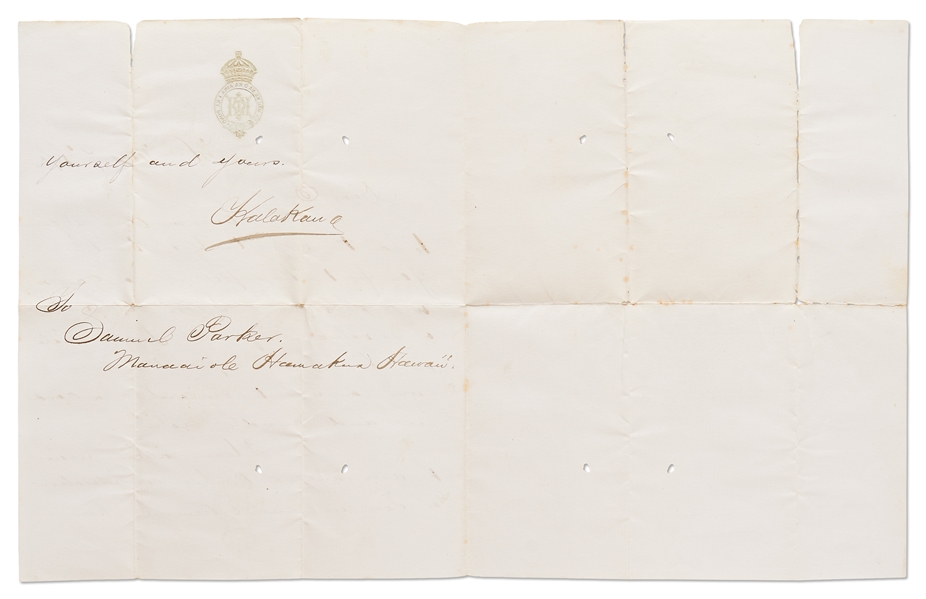 yourself and yours.
Kalakaua
To
Samuel Parker.
Manaaiole Hamakua Hawaii.